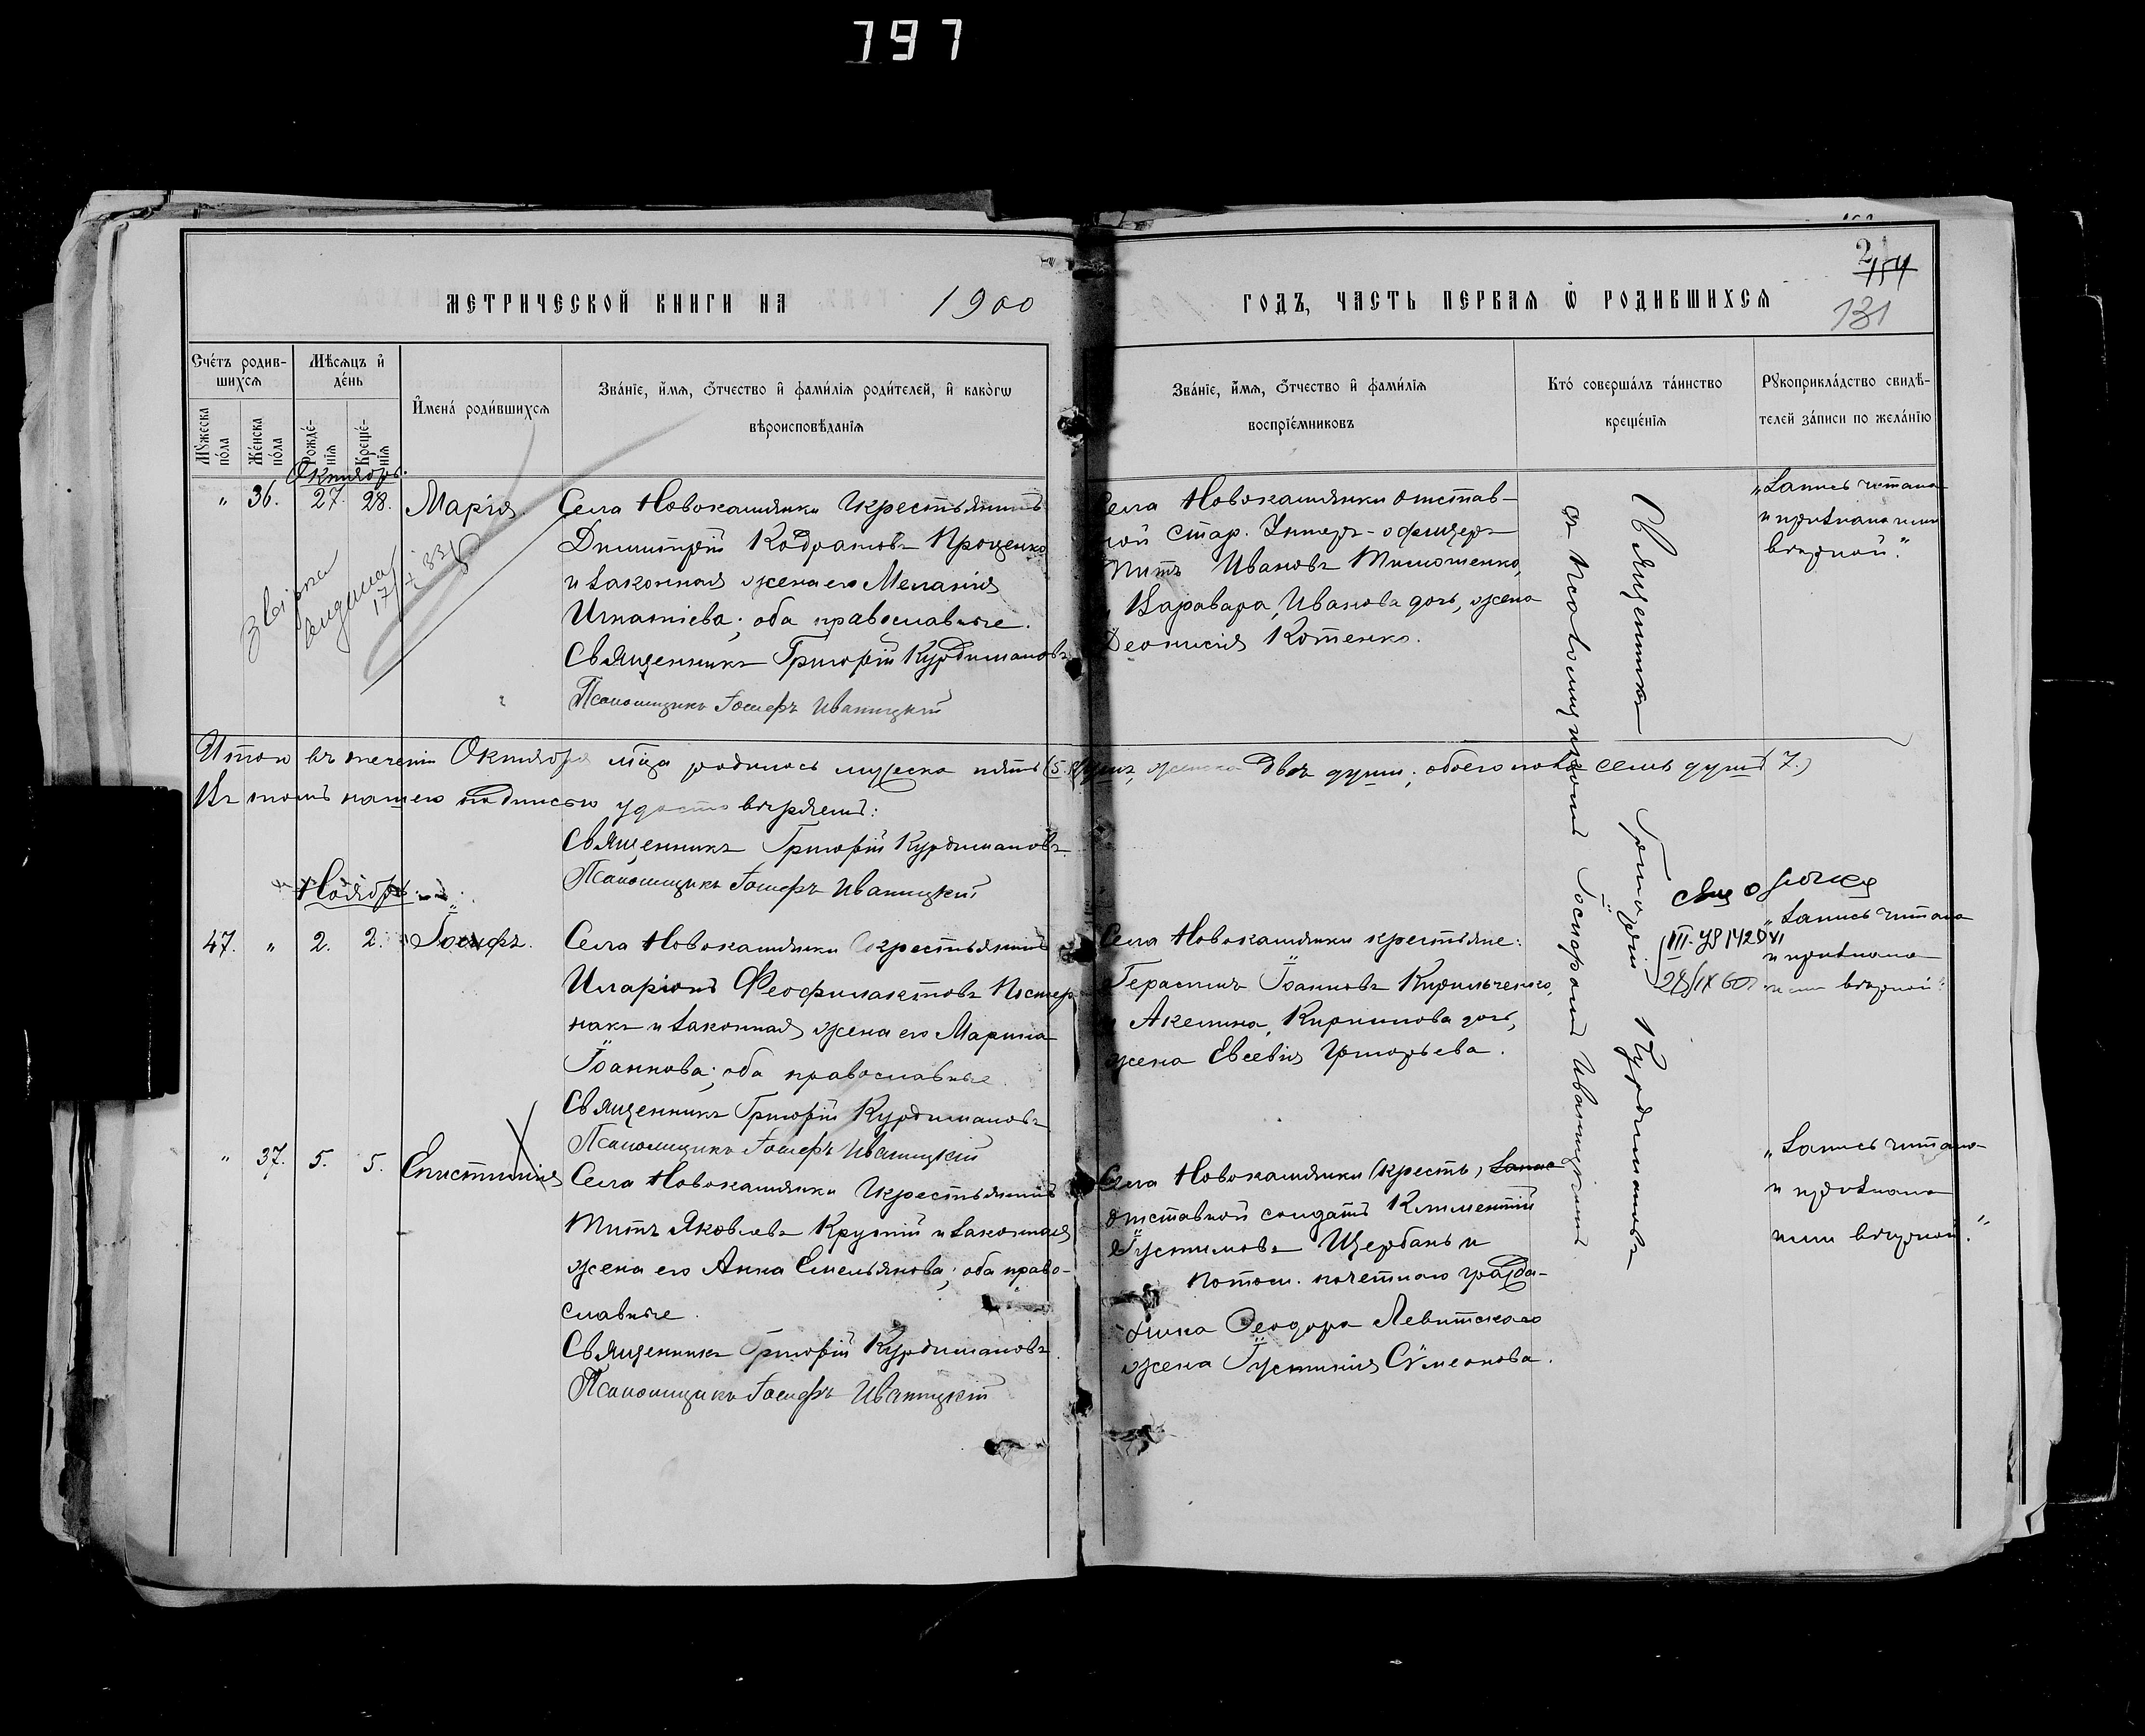 797
2
154
131
МЕТРИЧЕСКОЙ КНИГИ НА 1900
ГОДЪ, ЧАСТЬ ПЕРВАЯ Ѡ РОДИВШИХСЯ
Счéтъ родив-
шихся
Мѣсяцъ и҆
дéнь
Мꙋ́жеска
пóла
Жéнска
пóла
Рождé-
нїя
Крещé-
нїя
И҆менá роди́вшихся
Звáнїе, и҆́мя, ѻ҆́тчество и҆ фами́лїя роди́телей, и҆ какóгѡ
вѣроисповѣ́данїя
Звáнїе, и҆́мя, ѻ҆́тчество и҆ фами́лїя
воспрїéмниковъ
Ктó совершáлъ тáинство
крещéнїя
Рꙋкоприклáдство свидѣ́-
телей зáписи по желáнїю
Октябрь.
" 36. 27. 28. Марія.
Села Новокашянки крестьянинъ
Димитрій Кодратовъ Проценко
и законная жена его Меланія
Игнатіева; оба православные.
Священникъ Григорій Курдимановъ
Псаломщикъ Іосифъ Иваницкій
Села Новокашянки отстав-
ной стар. Унтеръ-офицеръ
Титъ Ивановъ Тимошенко,
и Варвара, Иванова дочь, жена
Деонисія Котенко.
"Запись читана
и признана нами
вѣрной."
Священникъ Григорій Курдимановъ
съ псаломщикомъ Іосифомъ Иваницкимъ
Итого въ теченіи Октября мѣсяца родилось мужеска пять (5) душъ, женска двѣ души; обоего пола семь душъ 7.)
Въ томъ нашею подписью удостовѣряемъ:
Священникъ Григорій Курдимановъ.
Псаломщикъ Іосифъ Иваницкій
Ноябрь
47. " 2. 2. Іосифъ.
Села Новокашянки крестьянинъ
Иларіонъ Феофилактовъ Постер
накъ и законная жена его Марина
Іоаннова; оба православные.
Священникъ Григорій Курдимановъ
Псаломщикъ Іосифъ Иваницкій
Села Новокашянки крестьяне:
Герасимъ Іоанновъ Кирильченко,
и Акелина, Кириллова дочь,
жена Евсевія Григорьева.
III-УР 1420 VI
28/IX 60
"Запись читана
и признана
нами вѣрной"
" 37. 5. 5. Епистимія
Села Новокашянки крестьянинъ
Титъ Яковлевъ Крупій и законная
жена его Анна Емельянова; оба право-
славные.
Священникъ Григорій Курдимановъ.
Псаломщикъ Іосифъ Иваницкій
Села Новокашянки (кресть)
отставной солдатъ Климентій
Іустимовъ Щербань и
потом. почетного гражда-
нина Ѳеодора Левитскаго
жена Іустинія Сѵмеонова.
"Запись читана
и признана
нами вѣрной."